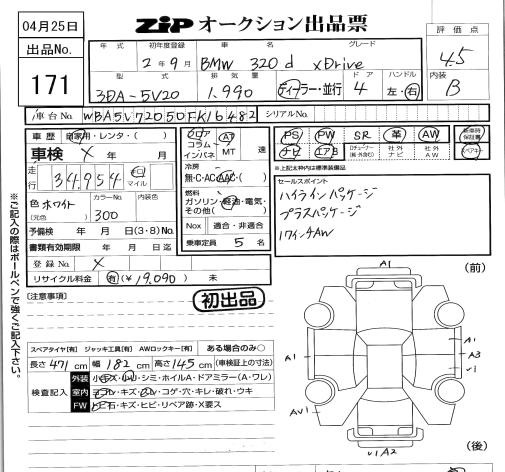 04月25日
ZiP オークション出品票
出品No.
171
年式 初年度登録 車名 グレード
2年9月 BMW 320d xDrive
評価点
4.5
型式 排気量 ドア ハンドル
3DA-5V20 1.990 ディーラー・並行 4 左・右
内装
B
車台No. WBA5V72050FK16482 シリアルNo.
車歴 自家用・レンタ・( )
車検 × 年 月
走行 34,954 キロ マイル
色 ホワイト (元色) カラーNo. 300 内装色
予備検 年 月 日(3・8)No.
書類有効期限 年 月 日迄
登録No. ×
リサイクル料金 有(¥19,090) 未
フロア コラム インパネ AT MT 速
冷房
無・C・AC・AAC・( )
燃料
ガソリン・軽油・電気・その他( )
Nox 適合・非適合
乗車定員 5 名
PS PW SR 革 AW
ナビ エアB 社外ナビ 社外AW
新車時保証書
*上記太枠内は標準装備品
セールスポイント
ハイラインパッケージ
プラスパッケージ
17インチAW
初出品
※ご記入の際はボールペンで強くご記入下さい。
[注意事項]
スペアタイヤ[有] ジャッキ工具[有] AWロックキー[有] ある場合のみ○
長さ 471 cm 幅 182 cm 高さ 145 cm (車検証上の寸法)
検査記入
外装 小キズ・小凹・シミ・ホイルA・ドアミラー(A・ワレ)
室内 スレ・キズ・ヨゴレ・コゲ・穴・キレ・破れ・ウキ
FW 飛石・キズ・ヒビ・リペア跡・X要ス
(前)
A1
A1
A1
A3
U1
AU1
U1A2
(後)